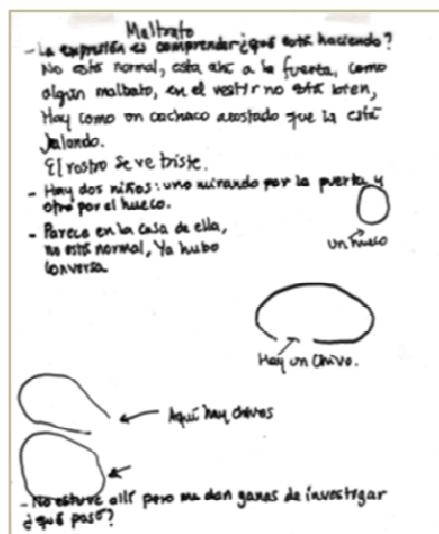 Maltrato
- La expresión es comprender ¿qué está haciendo?
No está normal, esta ahí a la fuerza, como
algún maltrato, en el vestir no está bien,
Hay como un cachaco acostado que la está
Jalando.
El rostro se ve triste.
- Hay dos niños: uno mirando por la puerta y
otro por el hueco.
- Parece en la casa de ella,
no está normal, Ya hubo
conversa.
un hueco
Hay un chivo.
Aquí hay chivos
- No estuve allí pero me dan ganas de investigar
¿qué pasó?